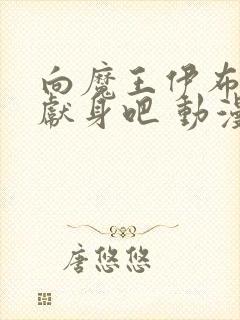 向魔王伊布
獻身吧 動漫
唐悠悠